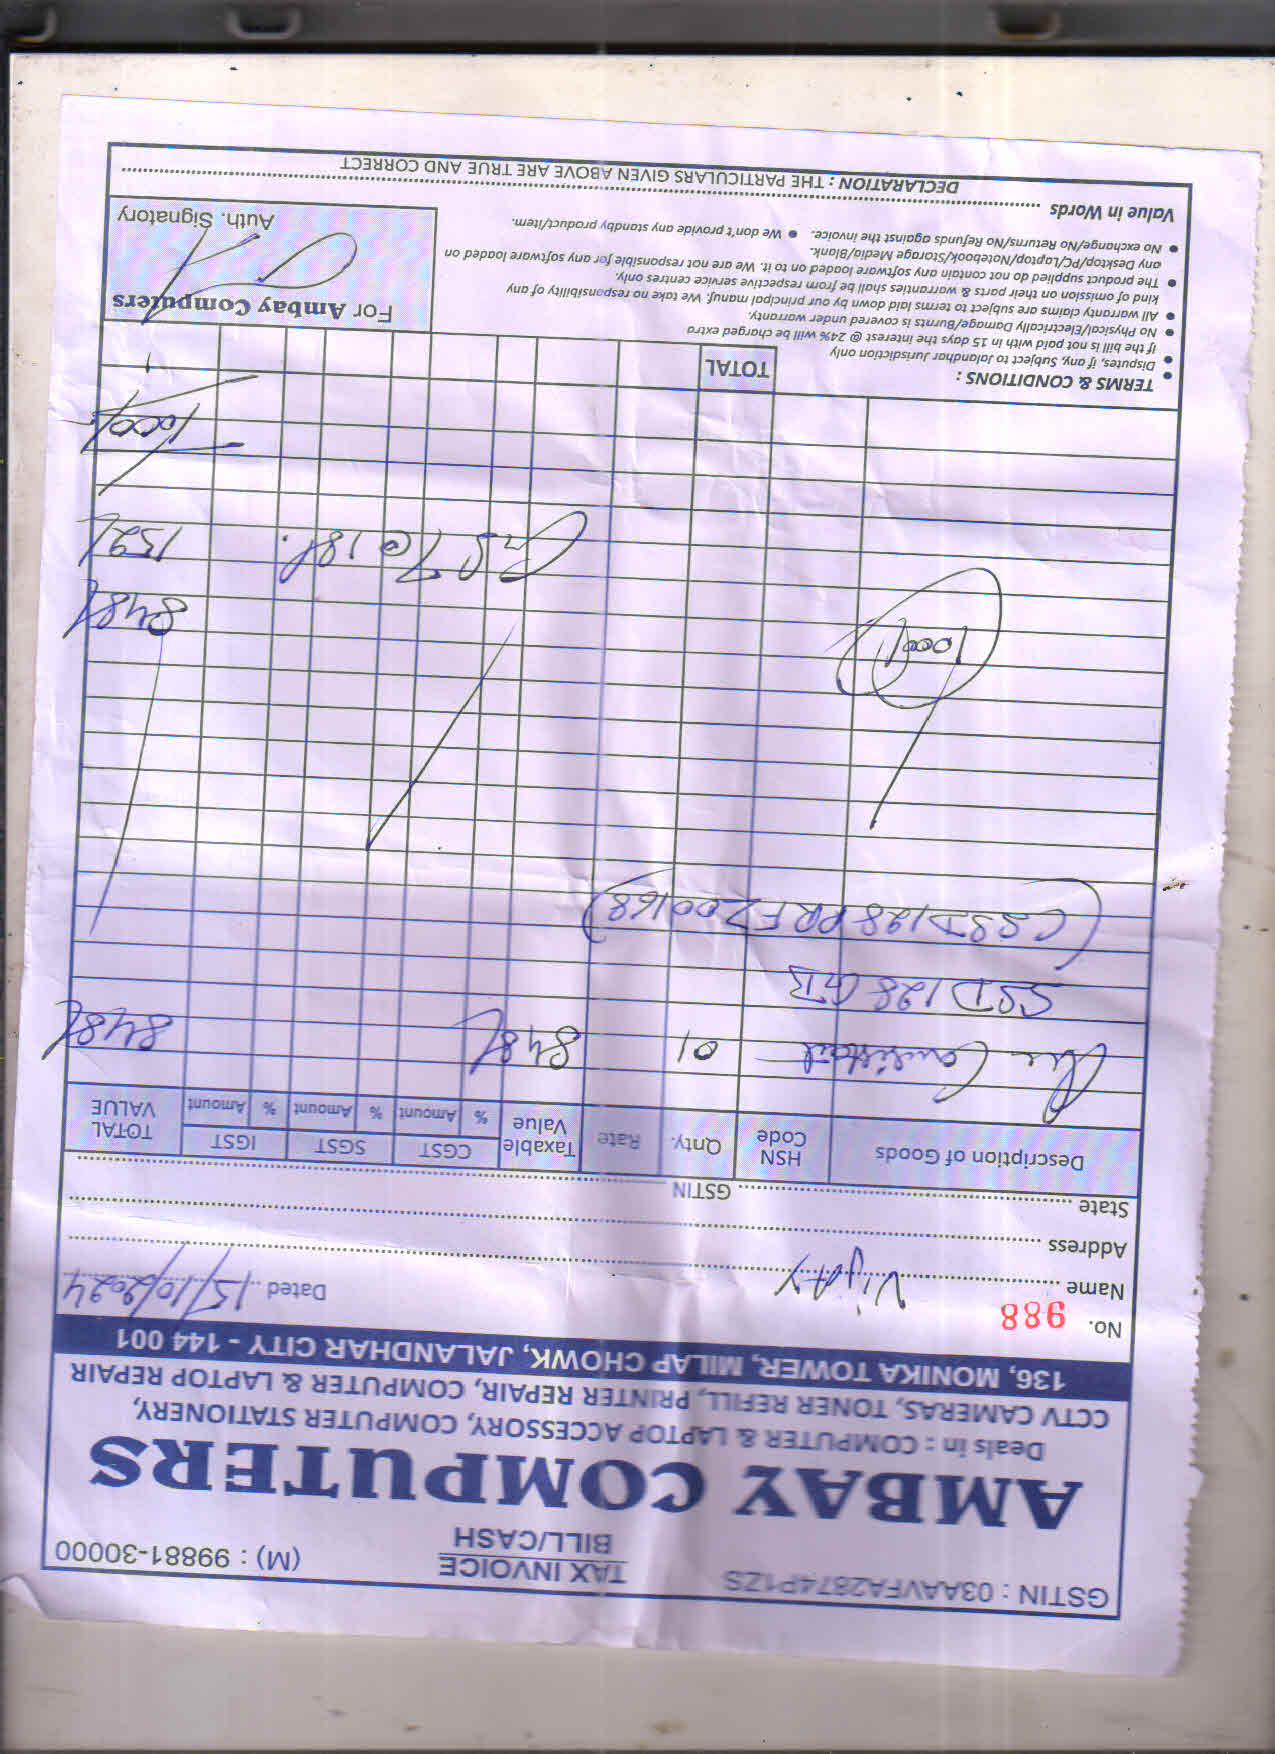 GSTIN : 03AAVFA2874P1ZS TAX INVOICE (M) : 99881-30000
BILL/CASH
AMBAY COMPUTERS
Deals in : COMPUTER & LAPTOP ACCESSORY, COMPUTER STATIONERY,
CCTV CAMERAS, TONER REFILL, PRINTER REPAIR, COMPUTER & LAPTOP REPAIR
136, MONIKA TOWER, MILAP CHOWK, JALANDHAR CITY - 144 001
No. 988 Dated 15/10/2024
Name Vijay
Address
State GSTIN
Description of Goods HSN Code Qnty. Rate Taxable Value CGST SGST IGST TOTAL VALUE
% Amount % Amount % Amount
01 848/ 848/
SSD 128 GB
(CSSD128PRFZ00168)
1000/
848/
GST @ 18%. 152/
1000/
TERMS & CONDITIONS : TOTAL
• Disputes, if any, Subject to Jalandhar Jurisdiction only
If the bill is not paid with in 15 days the interest @ 24% will be charged extra
• No Physical/Electrically Damage/Burnts is covered under warranty.
• All warranty claims are subject to terms laid down by our principal manuf. We take no responsibility of any
kind of omission on their parts & warranties shall be from respective service centres only.
• The product supplied do not contain any software loaded on to it. We are not responsible for any software loaded on
any Desktop/PC/Laptop/Notebook/Storage Media/Blank.
• No exchange/No Returns/No Refunds against the invoice. • We don't provide any standby product/item.
For Ambay Computers
Auth. Signatory
Value in Words
DECLARATION : THE PARTICULARS GIVEN ABOVE ARE TRUE AND CORRECT